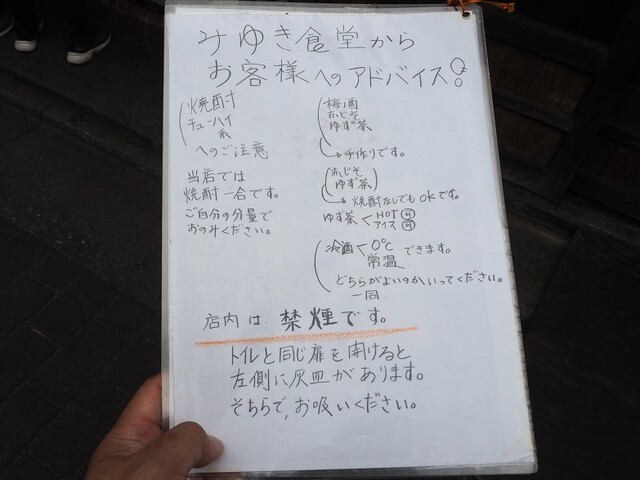 みゆき食堂から
お客様へのアドバイス!
焼酎
チューハイ
系
へのご注意
当店では
焼酎一合です。
ご自分の分量で
おのみください。
梅酒
おじそ
ゆず茶
手作りです。
おじそ
ゆず茶
焼酎なしでもOKです。
ゆず茶 HOT 可
アイス 可
冷酒 0℃ できます。
常温
どちらがよいのかいってください。
一同
店内は 禁煙です。
トイレと同じ扉を開けると
左側に灰皿があります。
そちらで、お吸いください。